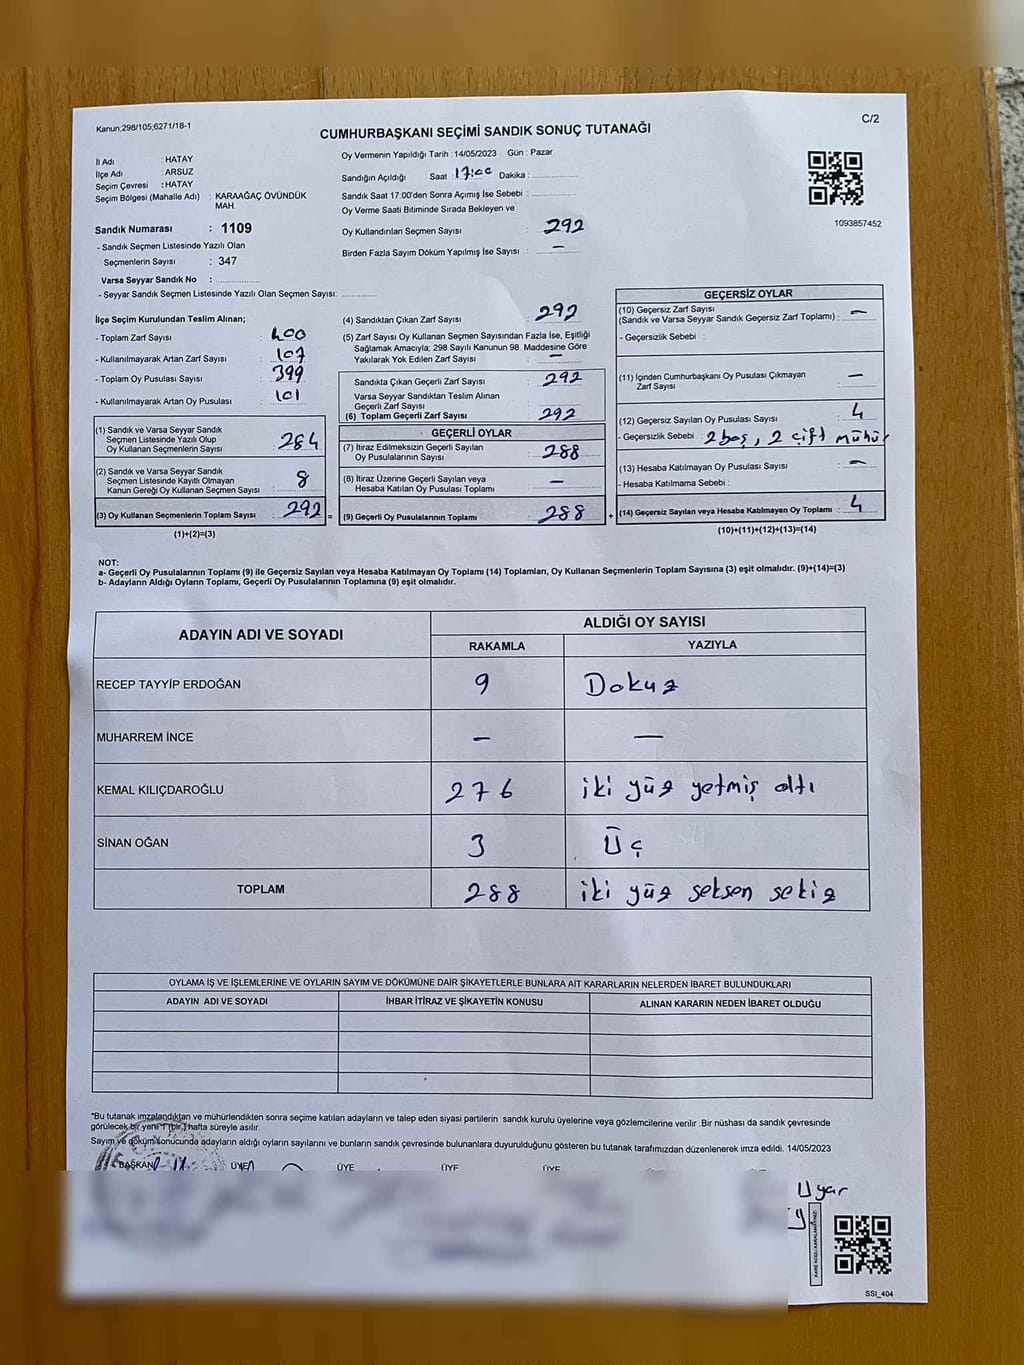 Kanun;298/105;6271/18-1
C/2
CUMHURBAŞKANI SEÇİMİ SANDIK SONUÇ TUTANAĞI
İl Adı : HATAY
İlçe Adı : ARSUZ
Seçim Çevresi : HATAY
Seçim Bölgesi (Mahalle Adı) : KARAAĞAÇ ÖVÜNDÜK
MAH.
Sandık Numarası : 1109
- Sandık Seçmen Listesinde Yazılı Olan
Seçmenlerin Sayısı : 347
Varsa Seyyar Sandık No :
- Seyyar Sandık Seçmen Listesinde Yazılı Olan Seçmen Sayısı:
Oy Vermenin Yapıldığı Tarih : 14/05/2023 Gün : Pazar
Sandığın Açıldığı Saat 17:00 Dakika :
Sandık Saat 17.00'den Sonra Açımış İse Sebebi :
Oy Verme Saati Bitiminde Sırada Bekleyen ve
Oy Kullandırılan Seçmen Sayısı : 292
Birden Fazla Sayım Döküm Yapılmış İse Sayısı : —
1093857452
İlçe Seçim Kurulundan Teslim Alınan;
- Toplam Zarf Sayısı : 400
- Kullanılmayarak Artan Zarf Sayısı : 107
- Toplam Oy Pusulası Sayısı : 399
- Kullanılmayarak Artan Oy Pusulası : 101
(1) Sandık ve Varsa Seyyar Sandık
Seçmen Listesinde Yazılı Olup
Oy Kullanan Seçmenlerin Sayısı : 284
(2) Sandık ve Varsa Seyyar Sandık
Seçmen Listesinde Kayıtlı Olmayan
Kanun Gereği Oy Kullanan Seçmen Sayısı : 8
(3) Oy Kullanan Seçmenlerin Toplam Sayısı : 292 =
(1)+(2)=(3)
(4) Sandıktan Çıkan Zarf Sayısı : 292
(5) Zarf Sayısı Oy Kullanan Seçmen Sayısından Fazla İse, Eşitliği
Sağlamak Amacıyla; 298 Sayılı Kanunun 98. Maddesine Göre
Yakılarak Yok Edilen Zarf Sayısı : —
Sandıkta Çıkan Geçerli Zarf Sayısı : 292
Varsa Seyyar Sandıktan Teslim Alınan
Geçerli Zarf Sayısı :
(6) Toplam Geçerli Zarf Sayısı : 292
GEÇERLİ OYLAR
(7) İtiraz Edilmeksizin Geçerli Sayılan
Oy Pusulalarının Sayısı : 288
(8) İtiraz Üzerine Geçerli Sayılan veya
Hesaba Katılan Oy Pusulası Toplamı : —
(9) Geçerli Oy Pusulalarının Toplamı : 288 +
GEÇERSİZ OYLAR
(10) Geçersiz Zarf Sayısı
(Sandık ve Varsa Seyyar Sandık Geçersiz Zarf Toplamı) : —
- Geçersizlik Sebebi :
(11) İçinden Cumhurbaşkanı Oy Pusulası Çıkmayan
Zarf Sayısı : —
(12) Geçersiz Sayılan Oy Pusulası Sayısı : 4
- Geçersizlik Sebebi : 2 boş, 2 çift mühür
(13) Hesaba Katılmayan Oy Pusulası Sayısı : —
- Hesaba Katılmama Sebebi :
(14) Geçersiz Sayılan veya Hesaba Katılmayan Oy Toplamı : 4
(10)+(11)+(12)+(13)=(14)
NOT:
a- Geçerli Oy Pusulalarının Toplamı (9) ile Geçersiz Sayılan veya Hesaba Katılmayan Oy Toplamı (14) Toplamları, Oy Kullanan Seçmenlerin Toplam Sayısına (3) eşit olmalıdır. (9)+(14)=(3)
b- Adayların Aldığı Oyların Toplamı, Geçerli Oy Pusulalarının Toplamına (9) eşit olmalıdır.
ADAYIN ADI VE SOYADI
ALDIĞI OY SAYISI
RAKAMLA YAZIYLA
RECEP TAYYİP ERDOĞAN 9 Dokuz
MUHARREM İNCE — —
KEMAL KILIÇDAROĞLU 276 iki yüz yetmiş altı
SİNAN OĞAN 3 Üç
TOPLAM 288 iki yüz seksen sekiz
OYLAMA İŞ VE İŞLEMLERİNE VE OYLARIN SAYIM VE DÖKÜMÜNE DAİR ŞİKAYETLERLE BUNLARA AİT KARARLARIN NELERDEN İBARET BULUNDUKLARI
ADAYIN ADI VE SOYADI İHBAR İTİRAZ VE ŞİKAYETİN KONUSU ALINAN KARARIN NEDEN İBARET OLDUĞU
*Bu tutanak imzalandıktan ve mühürlendikten sonra seçime katılan adayların ve talep eden siyasi partilerin sandık kurulu üyelerine veya gözlemcilerine verilir. Bir nüshası da sandık çevresinde
görülecek bir yere 1 (bir) hafta süreyle asılır.
Sayım ve döküm sonucunda adayların aldığı oyların sayılarını ve bunların sandık çevresinde bulunanlara duyurulduğunu gösteren bu tutanak tarafımızdan düzenlenerek imza edildi. 14/05/2023
BAŞKAN ÜYE ÜYE ÜYE ÜYE
Uyar
SSI_404